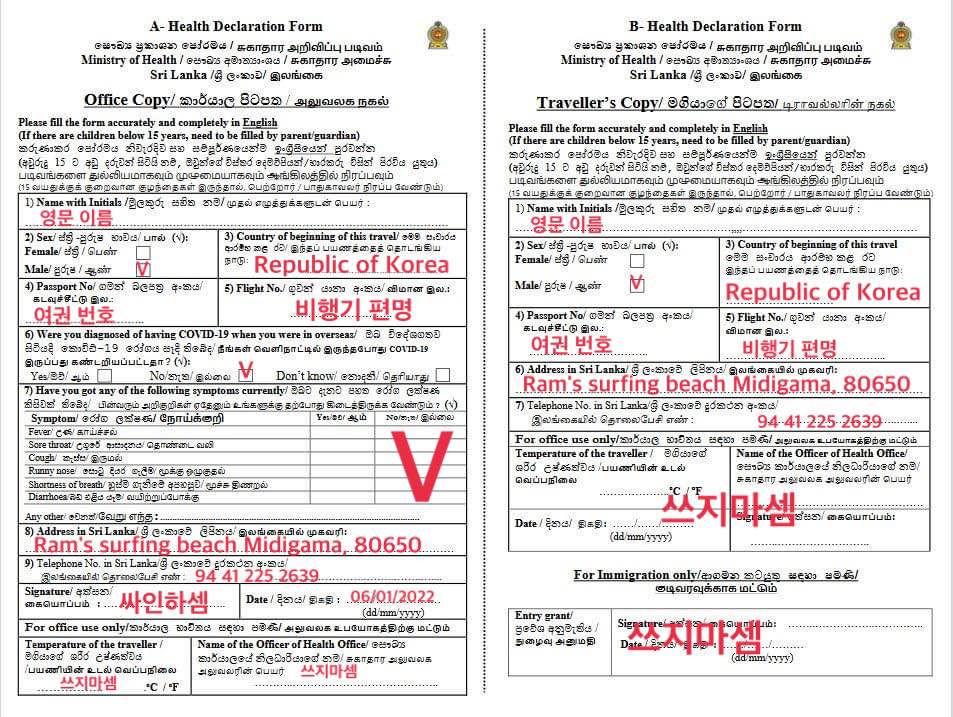 A- Health Declaration Form
සෞඛ්‍ය ප්‍රකාශන පෝරමය / சுகாதார அறிவிப்பு படிவம்
Ministry of Health / සෞඛ්‍ය අමාත්‍යාංශය / சுகாதார அமைச்சு
Sri Lanka /ශ්‍රී ලංකාව/ இலங்கை
Office Copy/ කාර්යාල පිටපත / அலுவலக நகல்
Please fill the form accurately and completely in English
(If there are children below 15 years, need to be filled by parent/guardian)
කරුණාකර පෝරමය නිවැරදිව සහ සම්පූර්ණයෙන්ම ඉංග්‍රීසියෙන් පුරවන්න
(අවුරුදු 15 ට අඩු දරුවන් සිටියි නම්, ඔවුන්ගේ විස්තර දෙමව්පියන්/භාරකරු විසින් පිරවිය යුතුය)
படிவங்களை துல்லியமாகவும் முழுமையாகவும் ஆங்கிலத்தில் நிரப்பவும்
(15 வயதுக்குக் குறைவான குழந்தைகள் இருந்தால், பெற்றோர் / பாதுகாவலர் நிரப்ப வேண்டும்)
1) Name with Initials /මුලකුරු සහිත නම/ முதல் எழுத்துக்களுடன் பெயர் :
영문 이름
2) Sex/ ස්ත්‍රී -පුරුෂ භාවය/ பால் (√):
Female/ ස්ත්‍රී / பெண்
Male/ පුරුෂ / ஆண் V
3) Country of beginning of this travel/ මෙම සංචාරය
ආරම්භ කළ රට/ இந்தப் பயணத்தைத் தொடங்கிய
நாடு: Republic of Korea
4) Passport No/ ගමන් බලපත්‍ර අංකය/
கடவுச்சீட்டு இல.:
여권 번호
5) Flight No./ ගුවන් යානා අංකය/ விமான இல.:
비행기 편명
6) Were you diagnosed of having COVID-19 when you were in overseas/ ඔබ විදේශගතව
සිටියදී කොවිඩ්-19 රෝගය සෑදී තිබේද/ நீங்கள் வெளிநாட்டில் இருந்தபோது COVID-19
இருப்பது கண்டறியப்பட்டதா? (√):
Yes/ඔව්/ ஆம் No/නැත/ இல்லை V Don't know/ නොදනී/ தெரியாது
7) Have you got any of the following symptoms currently/ ඔබට දැනට පහත රෝග ලක්ෂණ
කිසිවක් තිබේද/ பின்வரும் அறிகுறிகள் ஏதேனும் உங்களுக்கு தற்போது கிடைத்திருக்க வேண்டும் ? (√)
Symptom/ රෝග ලක්ෂණ/ நோய்க்குறி Yes/ඔව්/ ஆம் No/නැත/ இல்லை
Fever/ උණ/ காய்ச்சல்
Sore throat/ උගුරේ ආසාදනය/ தொண்டை வலி
Cough/ කැස්ස/ இருமல்
Runny nose/ සොටු දියර ගැලීම/ மூக்கு ஒழுகுதல்
Shortness of breath/ හුස්ම ගැනීමේ අපහසුව/ மூச்சு திணறல்
Diarrhoea/බඩ එළිය යෑම/ வயிற்றுப்போக்கு
V
Any other/ වෙනත්/வேறு எந்த :
8) Address in Sri Lanka/ ශ්‍රී ලංකාවේ ලිපිනය/ இலங்கையில் முகவரி:
Ram's surfing beach Midigama, 80650
9) Telephone No. in Sri Lanka/ශ්‍රී ලංකාවේ දුරකථන අංකය/
இலங்கையில் தொலைபேசி எண் : 94 41 225 2639
Signature/ අත්සන/
கையொப்பம் : 싸인하셈
Date / දිනය/ திகதி : 06/01/2022
(dd/mm/yyyy)
For office use only/කාර්යාල භාවිතය සඳහා පමණි/ அலுவலக உபயோகத்திற்கு மட்டும்
Temperature of the traveller /
මගියාගේ ශරීර උෂ්ණත්වය
/பயணியின் உடல் வெப்பநிலை
쓰지마셈 .ºC / ºF
Name of the Officer of Health Office/ සෞඛ්‍ය
කාර්යාලයේ නිලධාරියාගේ නම/ சுகாதார அலுவலக
அலுவலரின் பெயர் 쓰지마셈
B- Health Declaration Form
සෞඛ්‍ය ප්‍රකාශන පෝරමය / சுகாதார அறிவிப்பு படிவம்
Ministry of Health / සෞඛ්‍ය අමාත්‍යාංශය / சுகாதார அமைச்சு
Sri Lanka /ශ්‍රී ලංකාව/ இலங்கை
Traveller's Copy/ මගියාගේ පිටපත/ டிராவல்லரின் நகல்
Please fill the form accurately and completely in English
(If there are children below 15 years, need to be filled by parent/guardian)
කරුණාකර පෝරමය නිවැරදිව සහ සම්පූර්ණයෙන්ම ඉංග්‍රීසියෙන් පුරවන්න
(අවුරුදු 15 ට අඩු දරුවන් සිටියි නම්, ඔවුන්ගේ විස්තර දෙමව්පියන්/භාරකරු විසින් පිරවිය යුතුය)
படிவங்களை துல்லியமாகவும் முழுமையாகவும் ஆங்கிலத்தில் நிரப்பவும்
(15 வயதுக்குக் குறைவான குழந்தைகள் இருந்தால், பெற்றோர் / பாதுகாவலர் நிரப்ப வேண்டும்)
1) Name with Initials /මුලකුරු සහිත නම/ முதல் எழுத்துக்களுடன் பெயர் :
영문 이름
2) Sex/ ස්ත්‍රී -පුරුෂ භාවය/ பால் (√):
Female/ ස්ත්‍රී / பெண்
Male/ පුරුෂ / ஆண் V
3) Country of beginning of this travel
මෙම සංචාරය ආරම්භ කළ රට
இந்தப் பயணத்தைத் தொடங்கிய நாடு:
Republic of Korea
4) Passport No/ ගමන් බලපත්‍ර අංකය/
கடவுச்சீட்டு இல.:
여권 번호
5) Flight No./ ගුවන් යානා අංකය/
விமான இல.:
비행기 편명
6) Address in Sri Lanka/ ශ්‍රී ලංකාවේ ලිපිනය/ இலங்கையில் முகவரி:
Ram's surfing beach Midigama, 80650
7) Telephone No. in Sri Lanka/ශ්‍රී ලංකාවේ දුරකථන අංකය/
இலங்கையில் தொலைபேசி எண் : 94 41 225 2639
For office use only/කාර්යාල භාවිතය සඳහා පමණි/ அலுவலக உபயோகத்திற்கு மட்டும்
Temperature of the traveller / මගියාගේ
ශරීර උෂ්ණත්වය /பயணியின் உடல்
வெப்பநிலை
ºC / ºF
Name of the Officer of Health Office/
සෞඛ්‍ය කාර්යාලයේ නිලධාරියාගේ නම/
சுகாதார அலுவலக அலுவலரின் பெயர்
쓰지마셈
Date / දිනය/ திகதி:
(dd/mm/yyyy)
Signature/ අත්සන/ கையொப்பம்:
For Immigration only/ආගමන කටයුතු සඳහා පමණි/
குடிவரவுக்காக மட்டும்
Entry grant/
ප්‍රවේශ අනුමැතිය /
நுழைவு அனுமதி
Signature/ අත්සන/ கையொப்பம்:
쓰지마셈
Date / දිනය/ திகதி:
(dd/mm/yyyy)